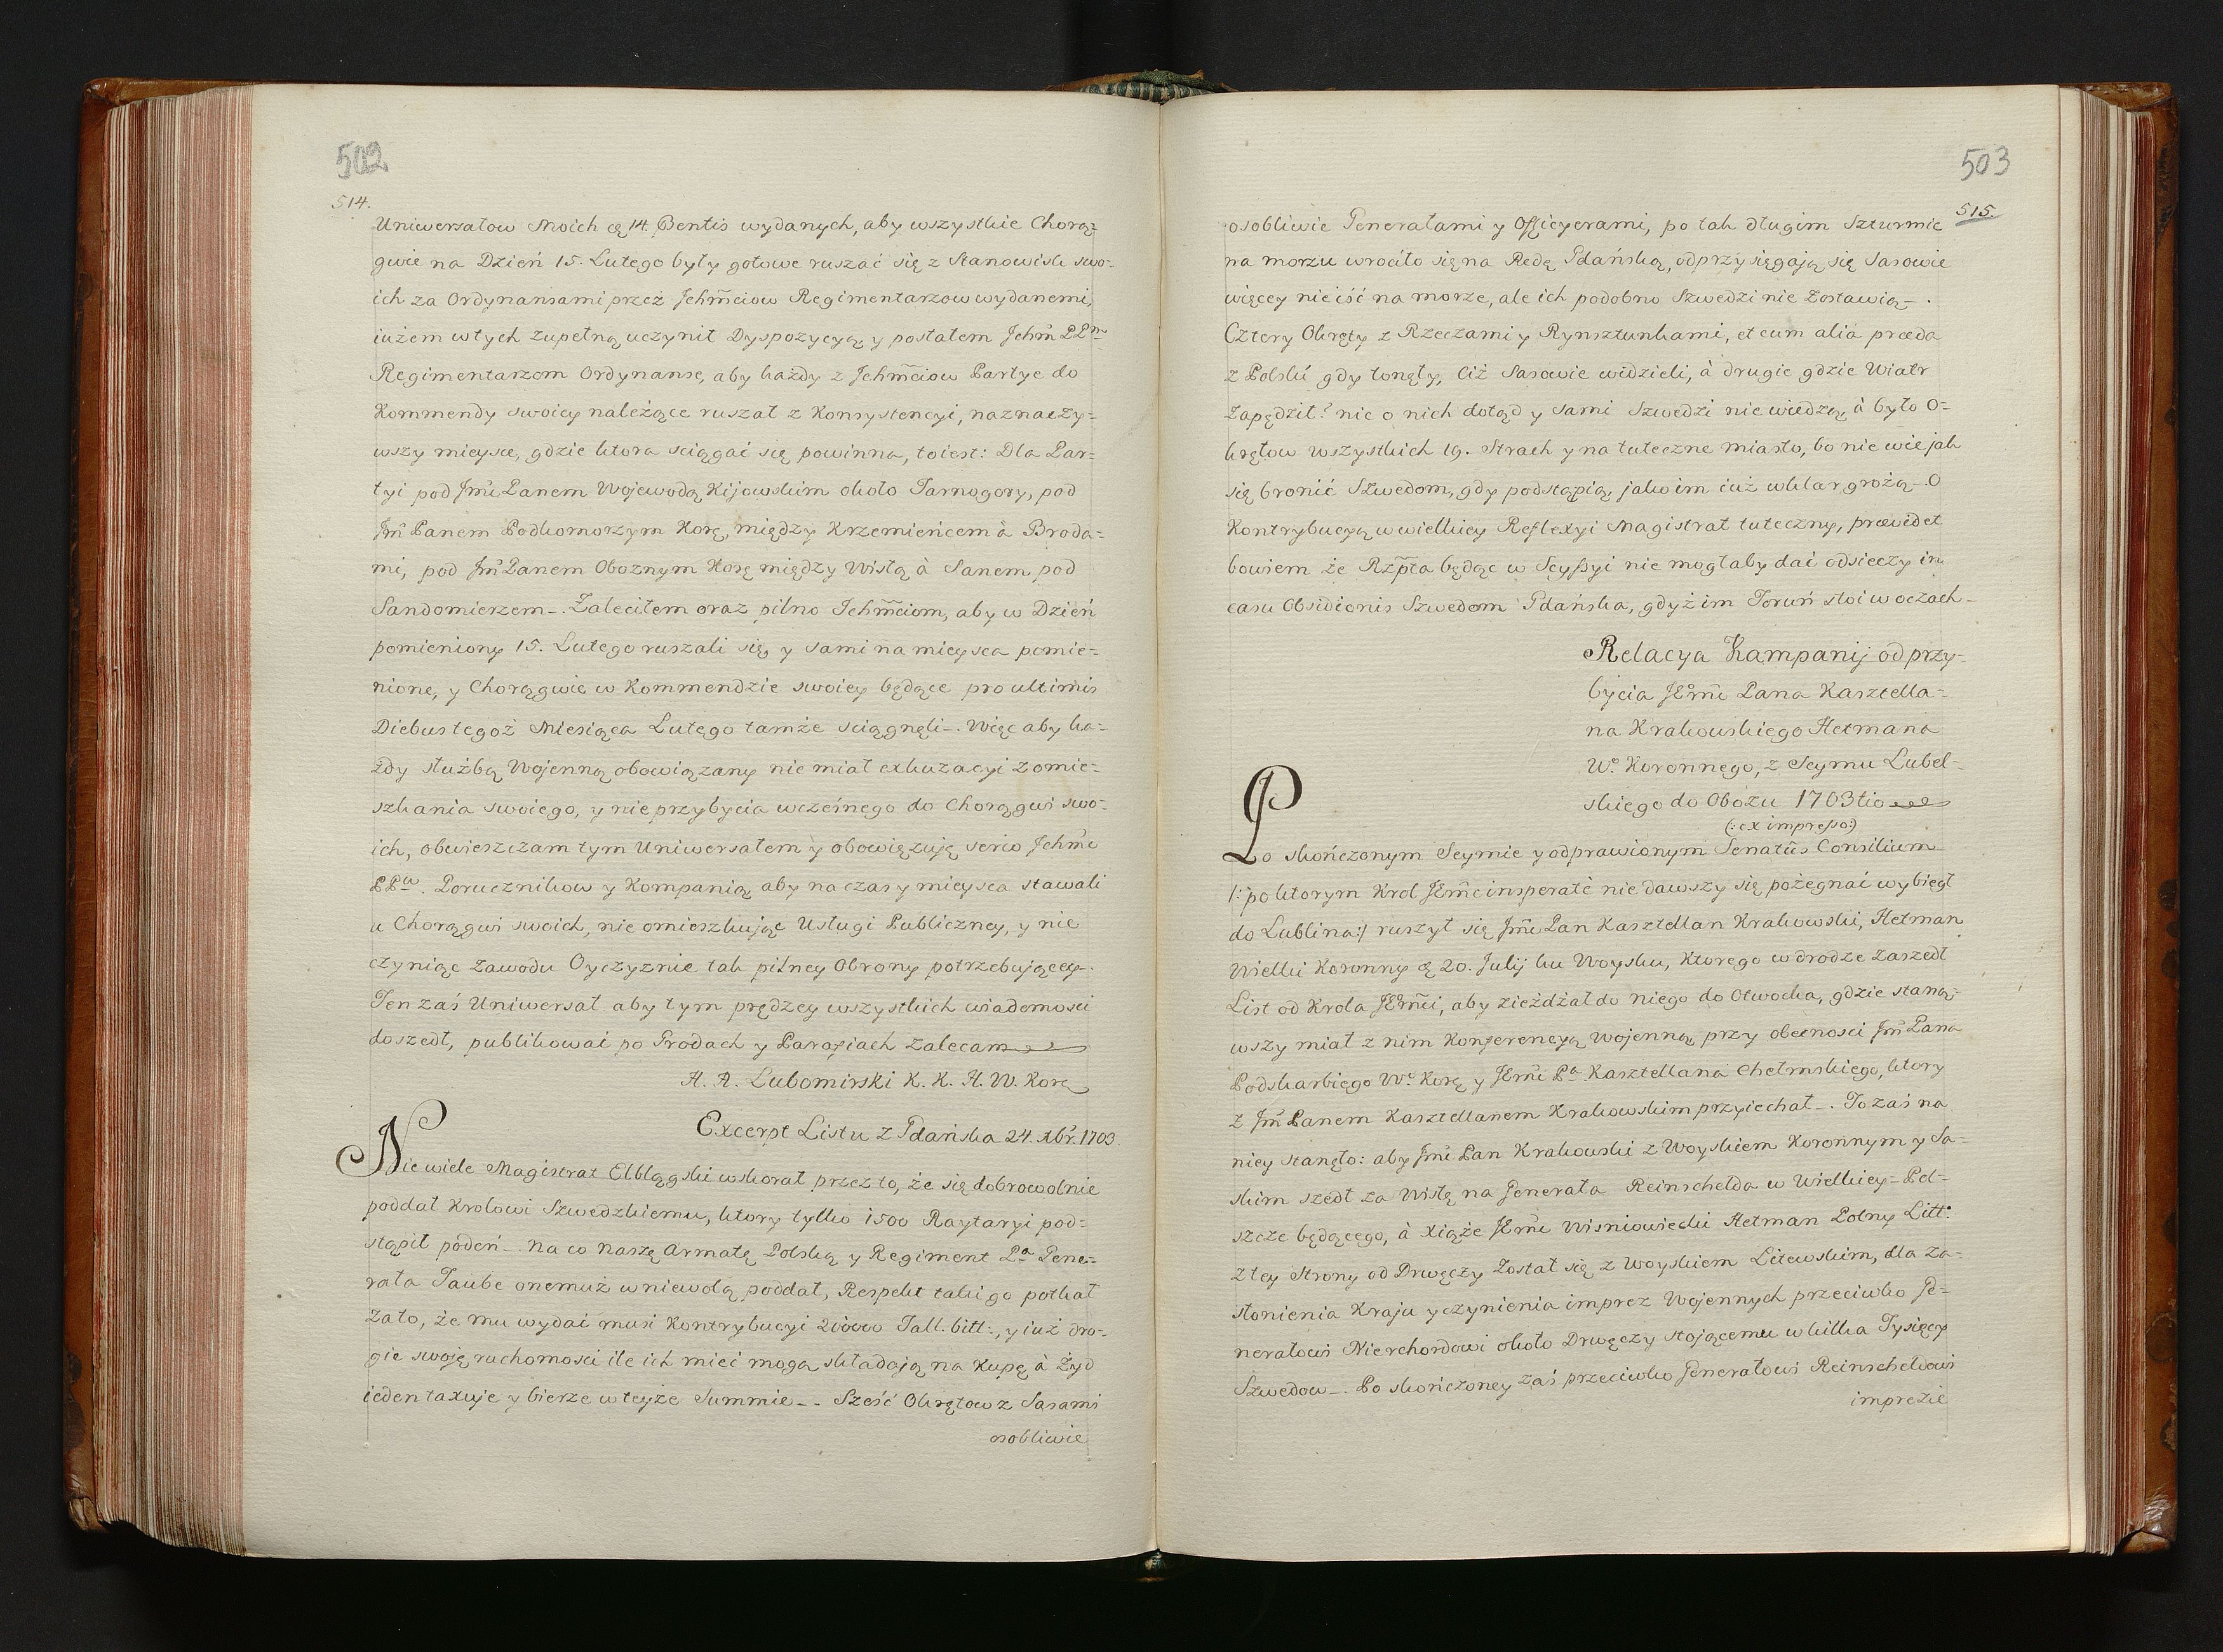 502
514.
Uniwersałow Moich ą 14. Bentis wydanych, aby wszystkie Chorą=
gwie na Dzień 15. Lutego były gotowe ruszać się z Stanowisk swo=
ich za Ordynansami przez Jchm̃ciow Regimentarzow wydanemi,
iużem w tych zupełną uczynił Dyspozycyą y posłałem Jchm̃
Regimentarzom Ordynanse, aby każdy z Jchm̃ciow Partye do
Kommendy swoiey należące ruszał z Konsystencyi, naznaczy=
wszy mieysce, gdzie ktora sciągać się powinna, to iest: Dla Par=
tyi pod Jm̃ Panem Wojewodą Kijowskim około Tarnogory, pod
Jm̃ Panem Podkomorzym Korą, między Krzemieńcem à Broda=
mi, pod Jm̃ Panem Oboznym Korą między Wisłą à Sanem pod
Sandomierzem_. Zaleciłem oraz pilno Jchm̃ciom, aby w Dzień
pomieniony 15. Lutego ruszali się, y sami na mieysca pomie=
nione, y Chorągwie w Kommendzie swoiey będące pro ultimis
Diebus tegoż Miesiąca Lutego tamże sciągnęli_. Więc aby ka=
żdy służbą Wojenną obowiązany nie miał exkuzacyi z omie=
szkania swoiego, y nie przybycia wczesnego do Chorągwi swo=
ich, obwieszczam tym Uniwersałem y obowięzuję serio Jchm̃
PPw. Porucznikow y Kompanią aby na czas y mieysca stawali
u Chorągwi swoich, nie omieszkując Usługi Publiczney, y nie
czyniąc zawodu Oyczyznie tak pilney Obrony potrzebującey_.
Ten zaś Uniwersał aby tym prędzey wszystkich wiadomosci
doszedł, publikować po Grodach y Parafiach zalecam
H. A. Lubomirski K. K. H. W. Korą
Excerpt Listu z Gdańska 24. Xbr. 1703.
Nie wiele Magistrat Elblągski wskorał przez to, że się dobrowolnie
poddał Krolowi Szwedzkiemu, ktory tylko 1500 Raytaryi pod=
stąpił podeń_. na co naszą Armatę Polską y Regiment Pa Gene=
rała Taube onemuż w niewolą poddał, Respekt taki go potkał
zato, że mu wydać musi Kontrybucyi 200000 Tall. bitt:, y iuż dro=
gie swoję ruchomosci ile ich mieć mogą składają na Kupę à Żyd
ieden taxuje y bierze w teyże Summie_. Sześć Okrętow z Sasami
osobliwie
503
515.
osobliwie Generałami y Officyerami, po tak długim Szturmie
na morzu wrociło się na Redę Gdańską, odprzysięgają się Sasowie
więcey nie iść na morze, ale ich podobno Szwedzi nie zostawią_.
Cztery Okręty z Rzeczami y Rynsztunkami, et cum alia præda
z Polski gdy tonęły, ciż Sasowie widzieli, à drugie gdzie Wiatr
zapędził? nic o nich dotąd y sami Szwedzi nie wiedzą, à było O=
krętow wszystkich 19. Strach y na tuteczne miasto, bo nie wie jak
się bronić Szwedom, gdy podstąpią, jako im iuż wklar grożą_. O
Kontrybucyą w wielkiey Reflexyi Magistrat tuteczny, prævidet
bowiem że Rzpta będąc w Scyssyi nie mogłaby dać odsieczy in
casu Obsidionis Szwedom Gdańska, gdyż im Toruń stoi w oczach_
Relacya Kampanij od przy=
bycia JEm̃ Pana Kasztella=
na Krakowskiego Hetmana
Wo. Koronnego, z Seymu Lubel=
skiego do Obozu 1703tio
(: ex impresso:)
Po skończonym Seymie y odprawionym Senatûs Consilium
/: po ktorym Krol JEm̃c insperatè nie dawszy się pożegnać wybiegł
do Lublina:/ ruszył się Jm̃ Pan Kasztellan Krakowski, Hetman
Wielki Koronny ą 20. Julij ku Woysku, Ktorego w drodze zaszedł
List od Krola JEm̃ci, aby zieżdżał do niego do Otwocka, gdzie staną=
wszy miał z nim Konferencyą Wojenną, przy obecnosci Jm̃ Pana
Podskarbiego Wo Korą y JEm̃ Pa Kasztellana Chełmskiego, ktory
z Jm̃ Panem Kasztellanem Krakowskim przyiechał_. To zaś na
niey stanęło: aby Jm̃ Pan Krakowski z Woyskiem Koronnym y Sa=
skim szedł za Wisłę na Generała Reinschelda w Wielkiey-Pol=
szcze będącego, à Xiąże JEm̃c Wisniowiecki Hetman Polny Litt:
z tey Strony od Drwęczy został się z Woyskiem Litewskim, dla za=
słonienia Kraju y czynienia imprez Wojennych przeciwko Ge=
nerałowi Nierchordowi około Drwęczy stojącemu w kilka Tysięcy
Szwedow_. Po skończoney zaś przeciwko Generałowi Reinscheldowi
imprezie